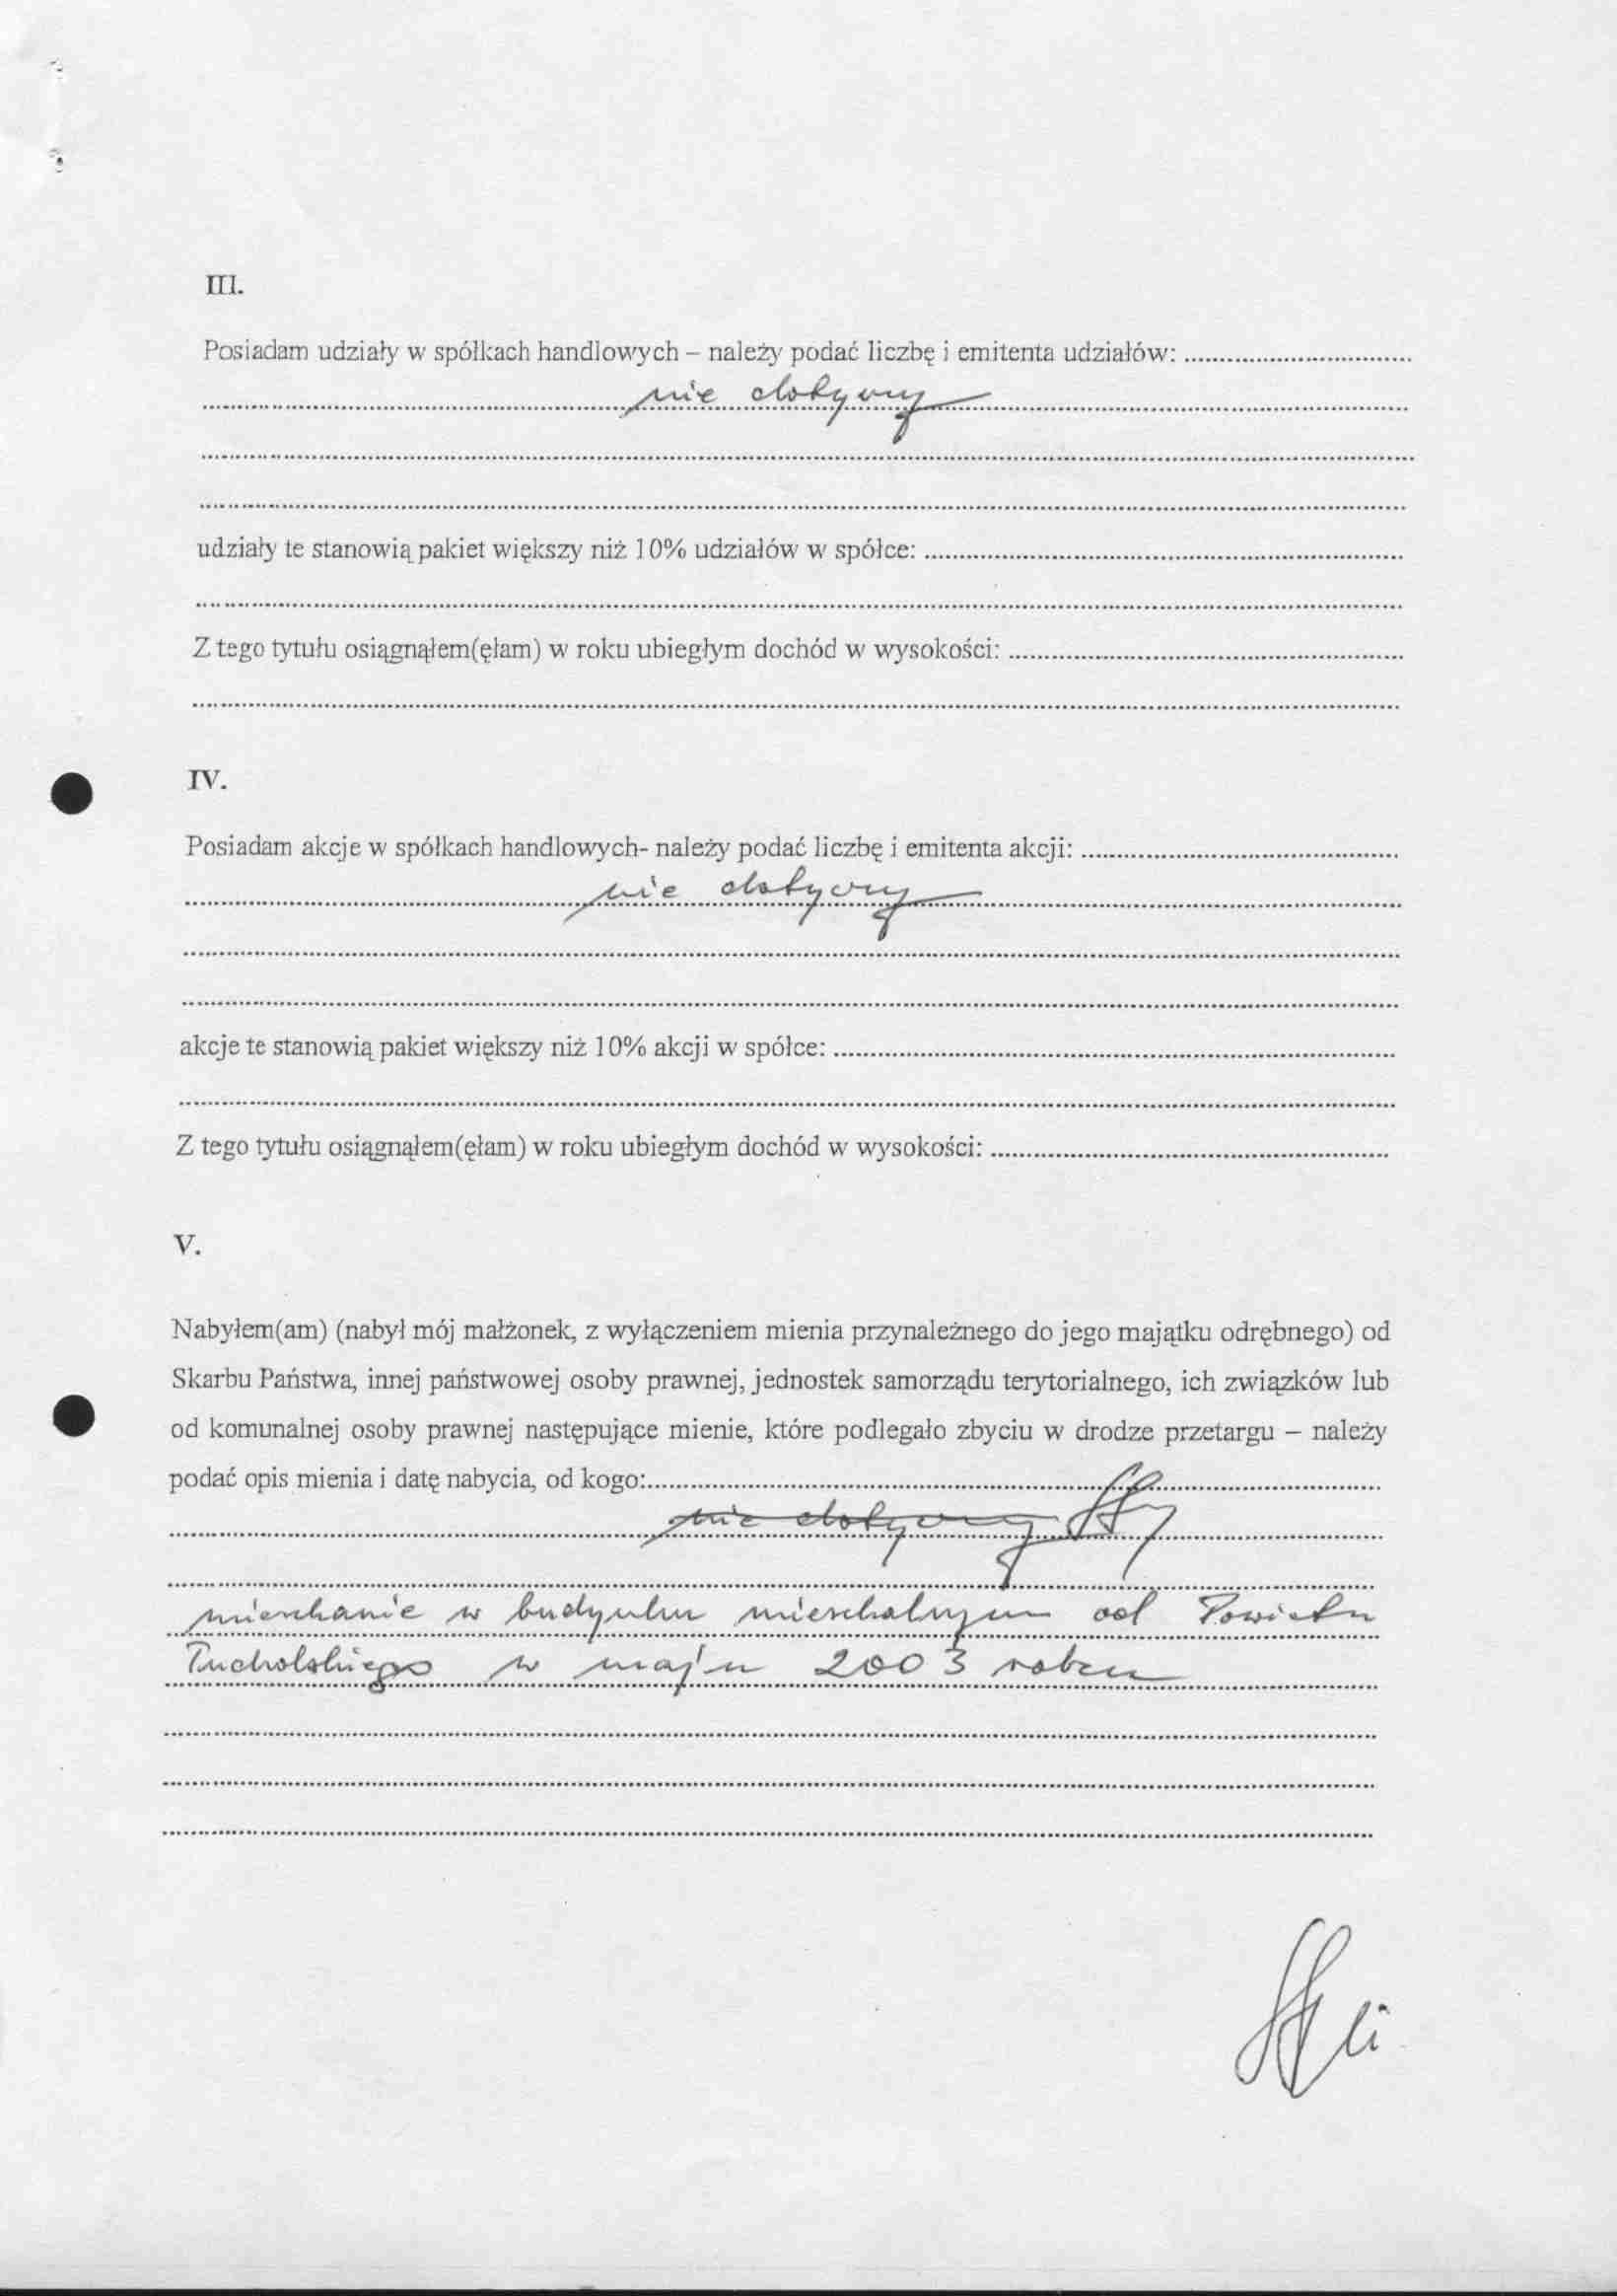 III.
Posiadam udziały w spółkach handlowych – należy podać liczbę i emitenta udziałów: ................................
nie dotyczy
udziały te stanowią pakiet większy niż 10% udziałów w spółce: ................................
Z tego tytułu osiągnąłem(ęłam) w roku ubiegłym dochód w wysokości: ................................
IV.
Posiadam akcje w spółkach handlowych- należy podać liczbę i emitenta akcji: ................................
nie dotyczy
akcje te stanowią pakiet większy niż 10% akcji w spółce: ................................
Z tego tytułu osiągnąłem(ęłam) w roku ubiegłym dochód w wysokości: ................................
V.
Nabyłem(am) (nabył mój małżonek, z wyłączeniem mienia przynależnego do jego majątku odrębnego) od
Skarbu Państwa, innej państwowej osoby prawnej, jednostek samorządu terytorialnego, ich związków lub
od komunalnej osoby prawnej następujące mienie, które podlegało zbyciu w drodze przetargu – należy
podać opis mienia i datę nabycia, od kogo:................................
nie dotyczy
mieszkanie w budynku mieszkalnym od Powiatu
Tucholskiego w maju 2003 roku